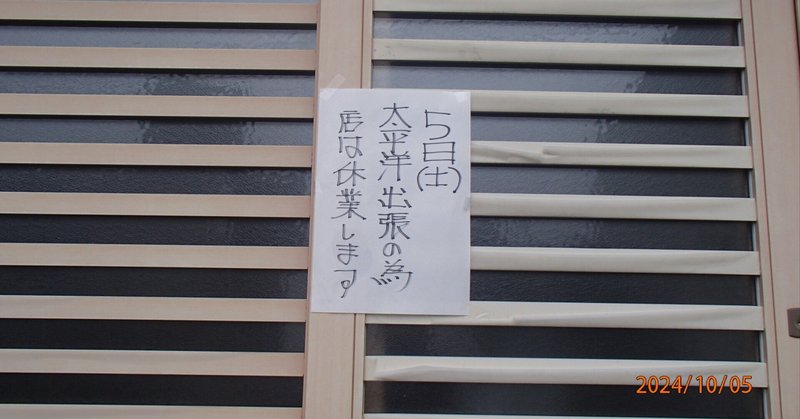 5日(土)
太平洋出張の為
店は休業します
2024/10/05